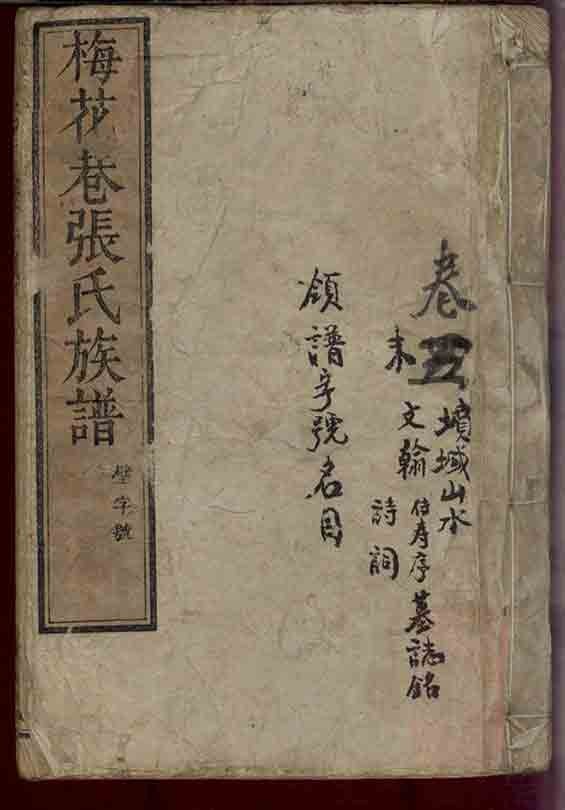 梅花巷張氏族譜
壁字號
卷五
末
墳域山水
文翰
傳壽序
墓誌銘
詩詞
領譜字號名目